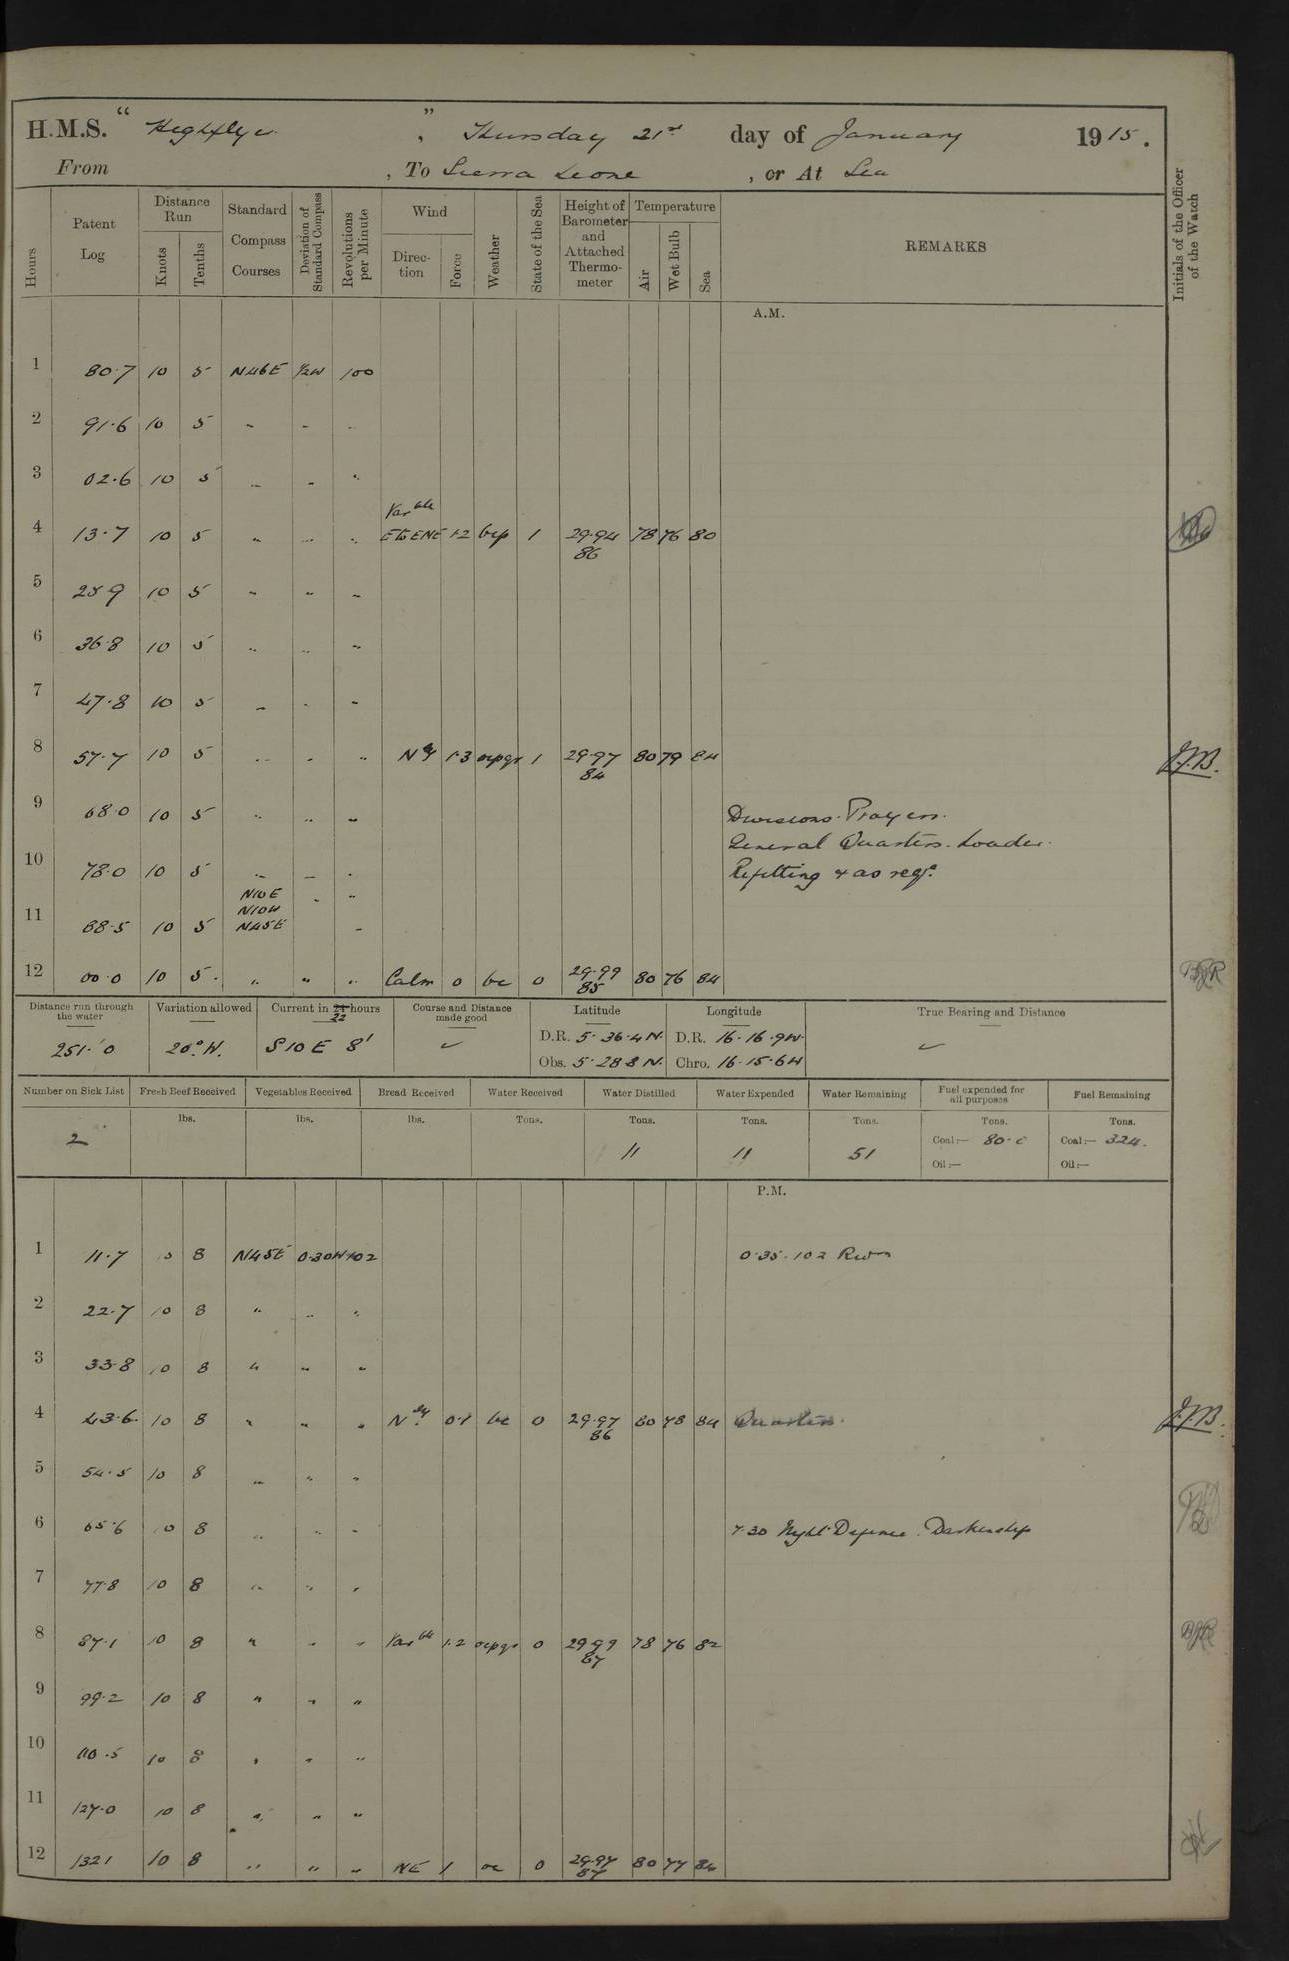 H.M.S. "Highflyer", Thursday 21st day of January 1915.
From , To Sierra Leone , or At Sea
Hours Patent Log Distance Run Knots Tenths Standard Compass Courses Deviation of Standard Compass Revolutions per Minute Wind Direc-tion Force Weather State of the Sea Height of Barometer and Attached Thermo-meter Temperature Air Wet Bulb Sea REMARKS Initials of the Officer of the Watch
A.M.
1 80.7 10 5 N46E ½W 100
2 91.6 10 5 " " "
3 02.6 10 5 " " "
Varble
4 13.7 10 5 " " " E to ENE 1-2 bcp 1 29.94 78 76 80
86
5 25.9 10 5 " " "
6 36.8 10 5 " " "
7 47.8 10 5 " " "
8 57.7 10 5 " " " Nly 1-3 ocpqr 1 29.97 80 79 84 J.J.B.
84
9 68.0 10 5 " " " Divisions. Prayers.
General Quarters. Loader.
10 78.0 10 5 " " " Refitting & as reqd.
N10E " "
N10W
11 88.5 10 5 N45E "
12 00.0 10 5 " " " Calm 0 bc 0 29.99 80 76 84
85
Distance run through the water Variation allowed Current in 24 22 hours Course and Distance made good Latitude Longitude True Bearing and Distance
251.0 20° W. S10E 8' ✓ D.R. 5.36.4 N. D.R. 16.16.9 W. ✓
Obs. 5.28.8 N. Chro. 16.15.6 W
Number on Sick List Fresh Beef Received Vegetables Received Bread Received Water Received Water Distilled Water Expended Water Remaining Fuel expended for all purposes Fuel Remaining
lbs. lbs. lbs. Tons. Tons. Tons. Tons. Tons. Tons.
2 11 11 51 Coal:— 80.0 Coal:— 324.
Oil:— Oil:—
P.M.
1 11.7 10 8 N45E 0.30W 102 0.35. 102 Revns
2 22.7 10 8 " " "
3 33.8 10 8 " " "
4 43.6 10 8 " " " Nly 0-1 bc 0 29.97 80 78 84 Quarters. J.J.B.
86
5 54.5 10 8 " " "
6 65.6 10 8 " " " 7.30 Night Defence. Darkenship
7 77.8 10 8 " " "
8 87.1 10 8 " " " Varble 1-2 ocpqr 0 29.99 78 76 82
87
9 99.2 10 8 " " "
10 110.5 10 8 " " "
11 127.0 10 8 " " "
12 132.1 10 8 " " " NE 1 oc 0 29.97 80 77 84
87